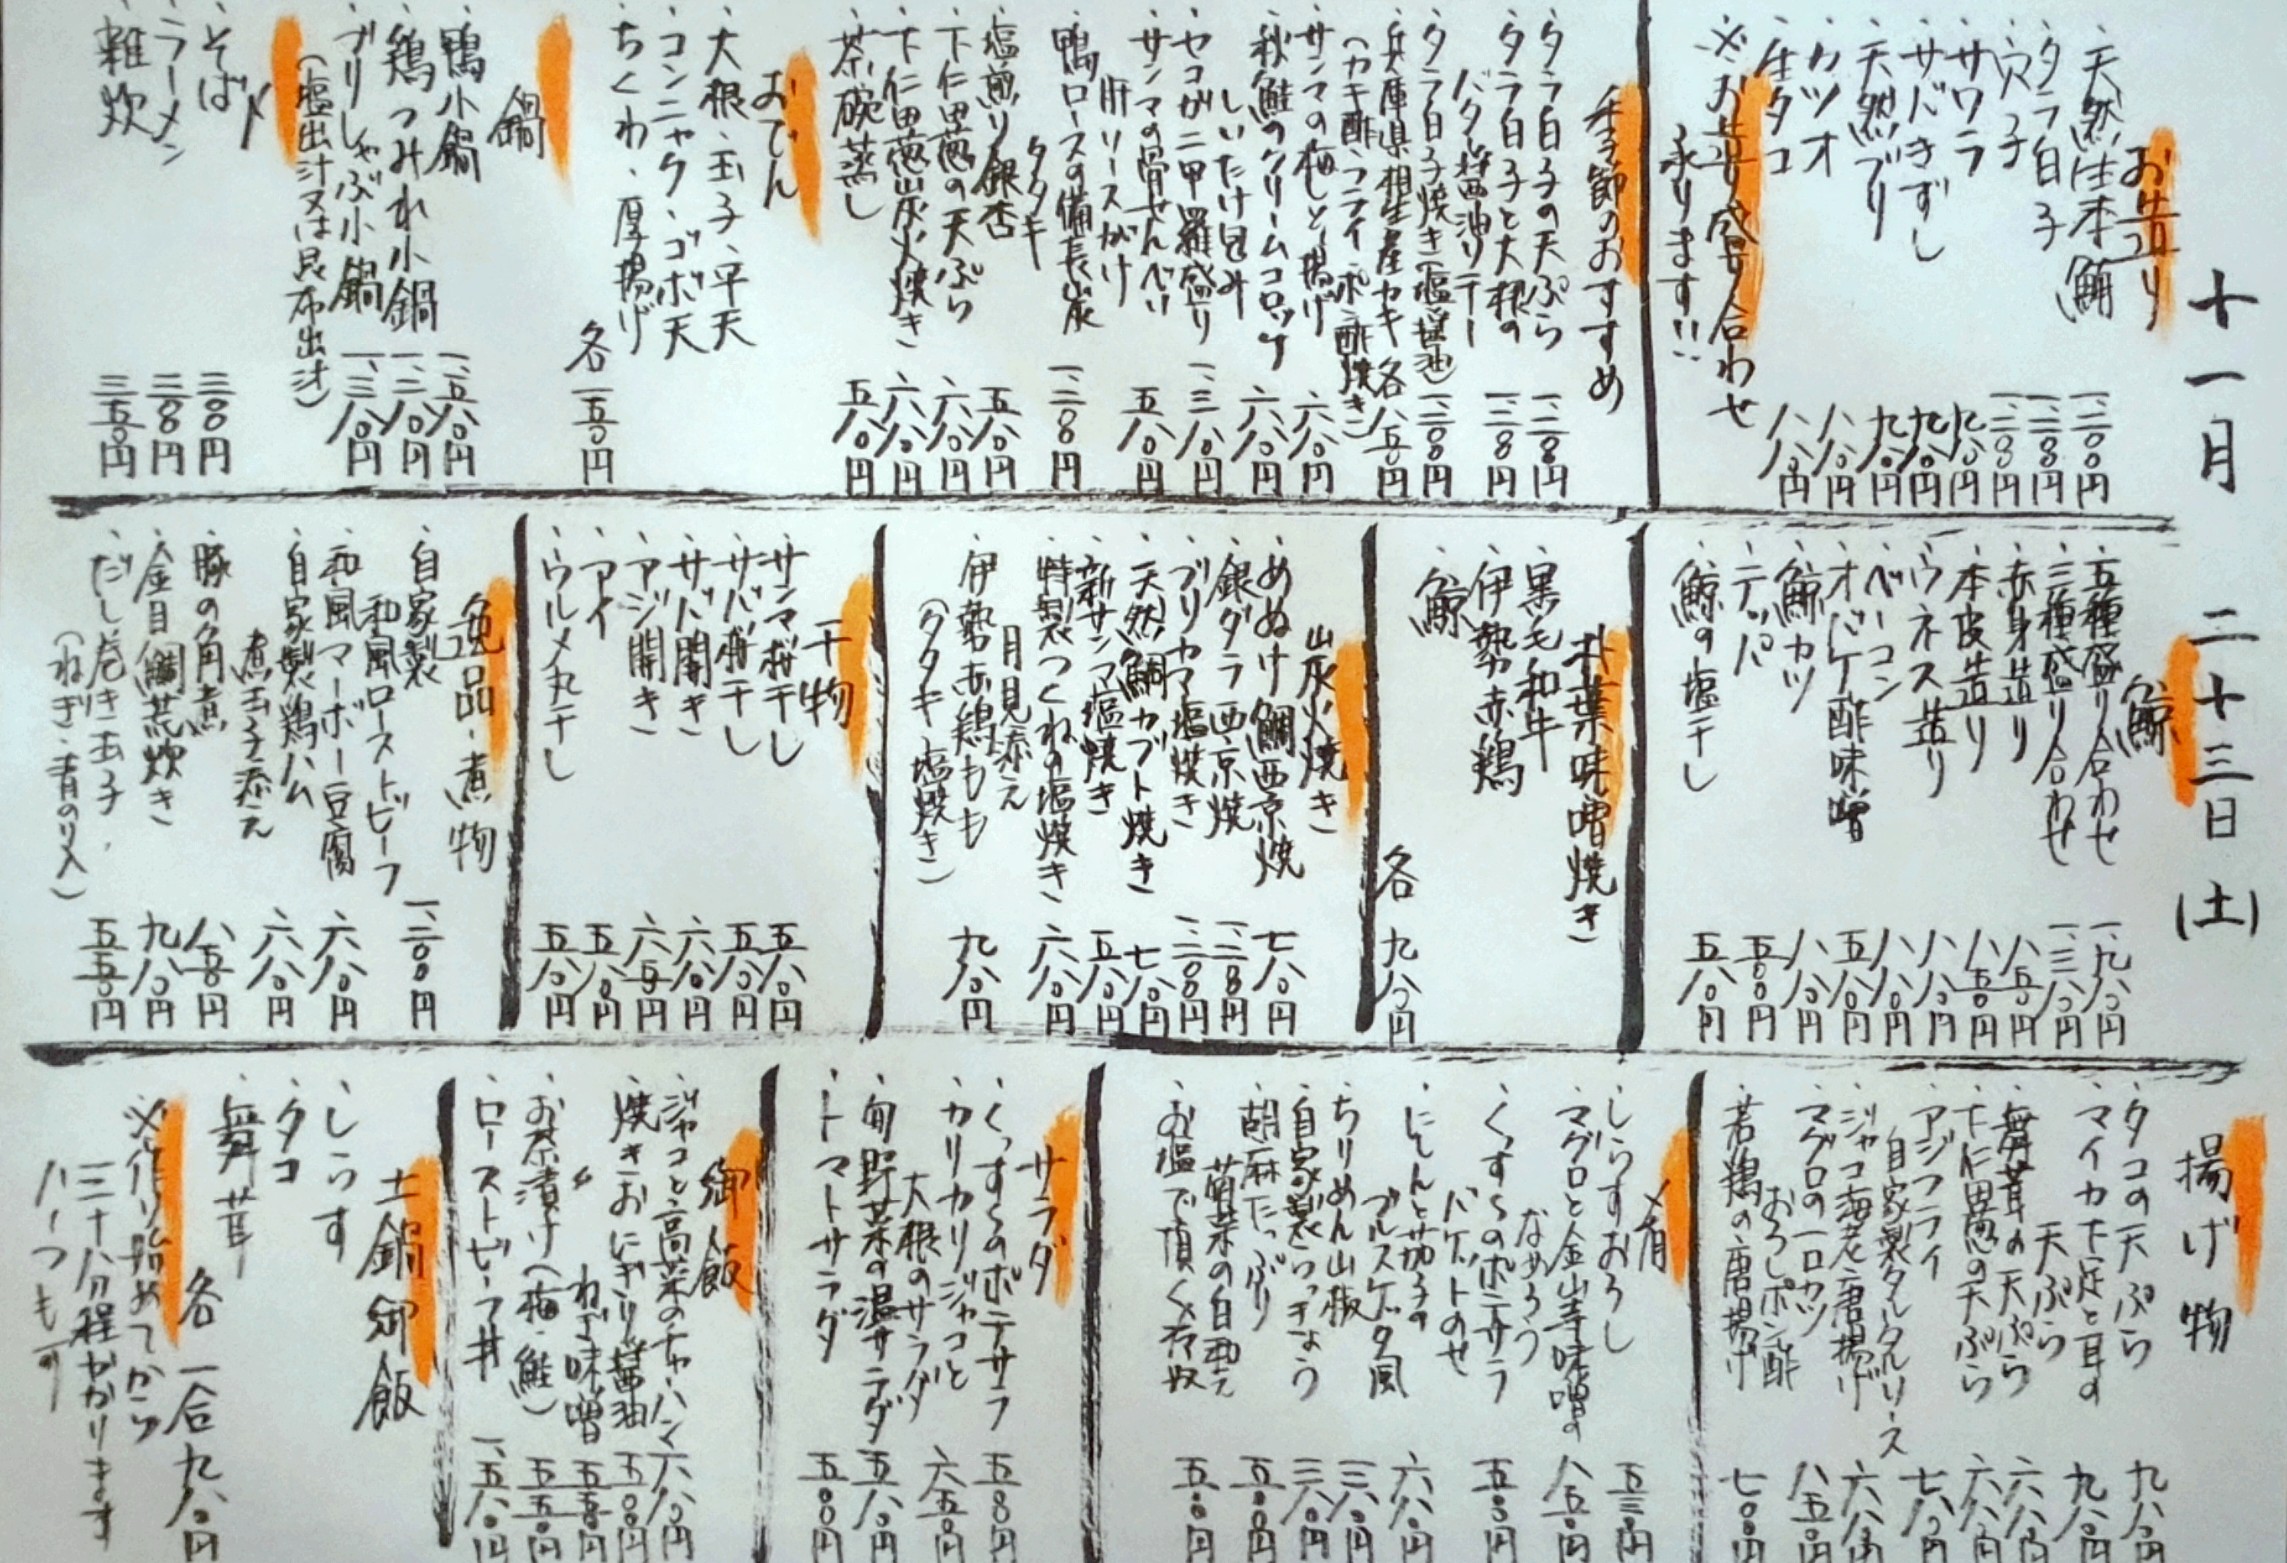 十一月 二十三日(土)
お造り
・天然生本鮪 一、二〇〇円
・タラ白子 一、二〇〇円
・穴子 一、二〇〇円
・サワラ 九八〇円
・サバきずし 九八〇円
・天然ブリ 九八〇円
・カツオ 八八〇円
・生タコ 八八〇円
※お造り盛り合わせ
承ります!!
季節のおすすめ
・タラ白子の天ぷら
・タラ白子と大根の
バター醤油ソテー
・タラ白子焼き(塩・醤油)
・兵庫県相生産カキ 各八五〇円
(カキ酢・フライ・ポン酢焼き)
・サンマの梅しそ揚げ 六八〇円
・秋鮭のクリームコロッケ 六八〇円
しいたけ包み
・セコガニ甲羅盛り 一、三八〇円
・サンマの骨せんべい 五八〇円
肝ソースがけ
・鴨ロースの備長炭
タタキ
・塩煎り銀杏 五八〇円
・下仁田葱の天ぷら 六八〇円
・下仁田葱炭火焼き 六八〇円
・茶碗蒸し 五八〇円
おでん
・大根・玉子・平天
・コンニャク・ゴボ天
・ちくわ・厚揚げ
各一五〇円
鍋
・鴨小鍋 一、五八〇円
・鶏つみれ小鍋 一、二八〇円
・ブリしゃぶ小鍋 一、三八〇円
(塩出汁又は昆布出汁)
〆
・そば 三〇〇円
・ラーメン 三〇〇円
・雑炊 三五〇円
鯨
・五種盛り合わせ 一、九八〇円
・三種盛り合わせ 一、三八〇円
・赤身造り 八五〇円
・本皮造り 八五〇円
・ウネス造り 八八〇円
・ベーコン 八八〇円
・オバケ酢味噌 五八〇円
・鯨カツ 八八〇円
・テッパ 五〇〇円
・鯨の塩干し 五八〇円
朴葉味噌焼き
・黒毛和牛
・伊勢赤鶏
・鯨
各 九八〇円
炭火焼き
・めぬけ鯛西京焼 七八〇円
・銀ダラ西京焼
・ブリカマ塩焼き
・天然鯛カブト焼き 七八〇円
・新サンマ塩焼き 五八〇円
・特製つくねの塩焼き 六八〇円
月見添え
・伊勢赤鶏もも 九八〇円
(タタキ・塩焼き)
干物
・サンマ桜干し 五八〇円
・サバ桜干し 五八〇円
・サバ開き 六八〇円
・アジ開き 六五〇円
・アイ 五八〇円
・ウルメ丸干し 五八〇円
逸品・煮物
・自家製
和風ローストビーフ 一、二〇〇円
・和風マーボー豆腐 六八〇円
・自家製鶏ハム 六八〇円
煮玉子添え
・豚の角煮 八五〇円
・金目鯛荒炊き 九八〇円
・だし巻き玉子 五五〇円
(ねぎ・青のり入)
揚げ物
・タコの天ぷら 九八〇円
・マイカ下足と耳の 九八〇円
天ぷら
・舞茸の天ぷら 六八〇円
・下仁田葱の天ぷら 六八〇円
・アジフライ 七八〇円
自家製タルタルソース
・ジャコ海老唐揚げ 六八〇円
・マグロの一口カツ 八五〇円
おろしポン酢
・若鶏の唐揚げ 七〇〇円
〆肴
・しらすおろし 五三〇円
・マグロと金山寺味噌の 八五〇円
なめろう
・くっすぅのポテサラ 五〇〇円
バゲットのせ
・にしんと茄子の 六八〇円
ブルスケッタ風
・ちりめん山椒 三八〇円
・自家製らっきょう 三八〇円
・胡麻たっぷり 五〇〇円
菊菜の白和え
・お塩で頂くざる奴 五〇〇円
サラダ
・くっすぅのポテサラ
・カリカリジャコと 六五〇円
大根のサラダ
・旬野菜の温サラダ 五八〇円
・トマトサラダ 五〇〇円
御飯
・ジャコと高菜のチャーハン 六八〇円
・焼きおにぎり醤油 五〇〇円
〃 ねぎ味噌 五五〇円
・お茶漬け(梅・鮭) 五五〇円
・ローストビーフ丼 一、五八〇円
土鍋御飯
・しらす
・タコ
・舞茸
各 一合九八〇円
※作り始めてから
三十八分程かかります